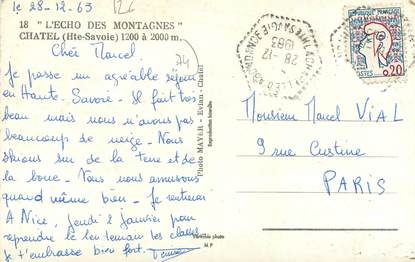 le 28-12-63
18 " L'ECHO DES MONTAGNES "
CHATEL (Hte-Savoie) 1200 à 2000 m.
74
Cher Marcel
Je passe un agréable séjour
en Haute-Savoie. Il fait très
beau mais nous n'avons pas
beaucoup de neige. Nous
skions sur de la terre et de
la boue. Nous nous amusons
quand même bien. Je rentrerai
A Nice, jeudi 2 janvier pour
reprendre le lendemain les classes
Je t'embrasse bien fort.
Photo MAYER - Evian - Chatel
Véritable photo
M P
28 -12
1963
POSTES
0,20
Monsieur Marcel VIAL
9 rue Custine
PARIS